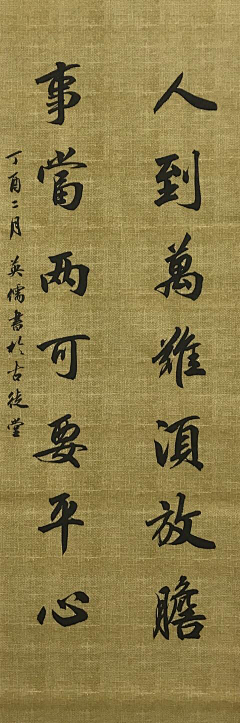 人到萬難須放膽
事當两可要平心
丁酉二月英儒書於古徒堂